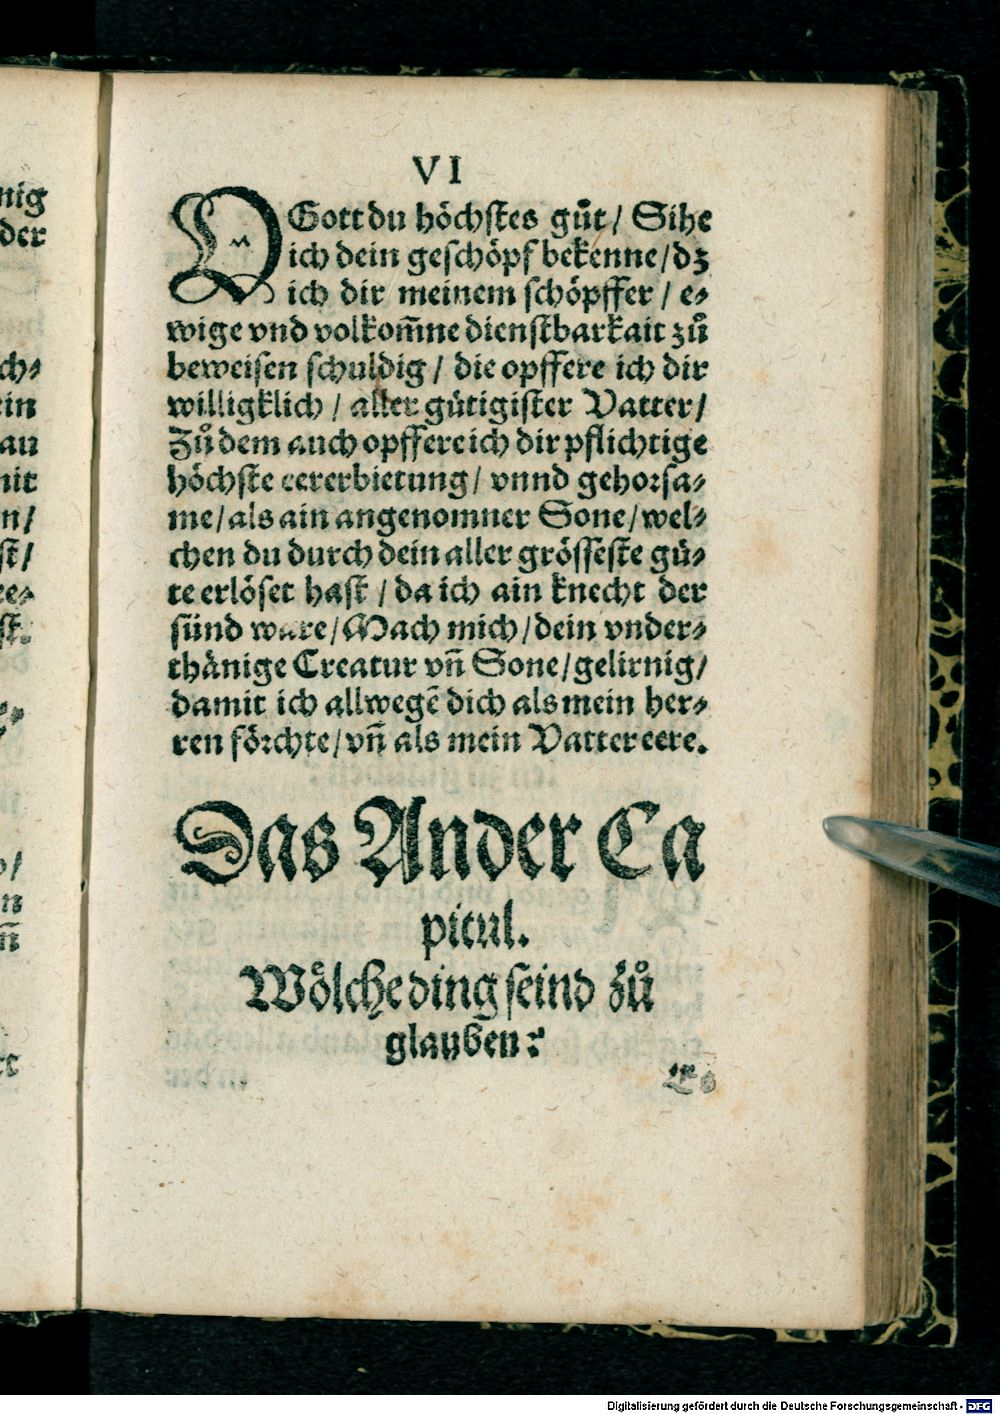 nig
der
ch⸗
ein
au
mit
n/
st/
re⸗
st.
n
n̄
VI
O Gott du höchstes gůt/ Sihe
ich dein geschöpf bekenne/dz
ich dir meinem schöpffer / e⸗
wige vnd volkom̄ne dienstbarkait zů
beweisen schuldig / die opffere ich dir
willigklich / aller gütigister Vatter/
Zů dem auch opffere ich dir pflichtige
höchste eererbietung/ vnnd gehorsa⸗
me/als ain angenomner Sone/wel⸗
chen du durch dein aller grösseste gü⸗
te erlöset hast / da ich ain knecht der
sünd ware/Mach mich/dein vnder⸗
thänige Creatur vn̄ Sone/gelirnig/
damit ich allwegē dich als mein her⸗
ren förchte/vn̄ als mein Vatter eere.
Das Ander Ca
pitul.
Wölche ding seind zů
glauben?
Es
Digitalisierung gefördert durch die Deutsche Forschungsgemeinschaft - DFG